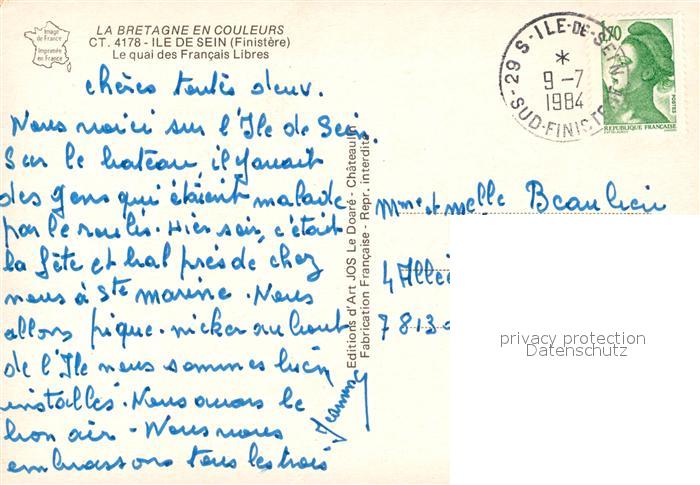 LA BRETAGNE EN COULEURS
CT. 4178 - ILE DE SEIN (Finistère)
Le quai des Français Libres
Image de France
Imprimée en France
chères toutes deux.
Nous voici sur l'Ile de Sein.
Sur le bateau, il y avait
des gens qui étaient malade
par le roulis. Hier soir, c'était
la fête et bal près de chez
nous à Ste marine. Nous
allons pique-niquer au bout
de l'Ile nous sommes bien
installés. Nous avons le
bon air - Nous vous
embrassons tous les trois
Editions d'Art JOS Le Doaré - Châteaulin
Fabrication Française - Repr. interdite
29 S-ILE-DE-SEIN
*
9-7
1984
SUD-FINIST
1,70
POSTES
REPUBLIQUE FRANÇAISE
Mme et Melle Beaulieu
4 Allée
7813
privacy protection
Datenschutz